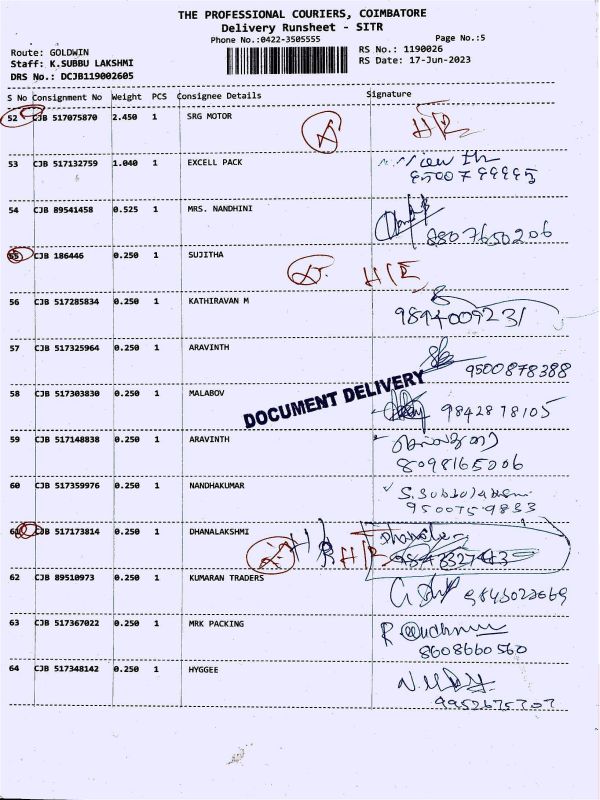 THE PROFESSIONAL COURIERS, COIMBATORE
Delivery Runsheet - SITR
Phone No.:0422-3505555
Page No.:5
Route: GOLDWIN
RS No.: 1190026
Staff: K.SUBBU LAKSHMI
RS Date: 17-Jun-2023
DRS No.: DCJB119002605
S No Consignment No Weight PCS Consignee Details Signature
52 CJB 517075870 2.450 1 SRG MOTOR
53 CJB 517132759 1.040 1 EXCELL PACK
54 CJB 89541458 0.525 1 MRS. NANDHINI
8807650206
55 CJB 186446 0.250 1 SUJITHA
56 CJB 517285834 0.250 1 KATHIRAVAN M
9894009231
57 CJB 517325964 0.250 1 ARAVINTH
9500878388
58 CJB 517303830 0.250 1 MALABOV
DOCUMENT DELIVERY
9842878105
59 CJB 517148838 0.250 1 ARAVINTH
8098165006
60 CJB 517359976 0.250 1 NANDHAKUMAR
61 CJB 517173814 0.250 1 DHANALAKSHMI
62 CJB 89510973 0.250 1 KUMARAN TRADERS
63 CJB 517367022 0.250 1 MRK PACKING
8608660560
64 CJB 517348142 0.250 1 HYGGEE